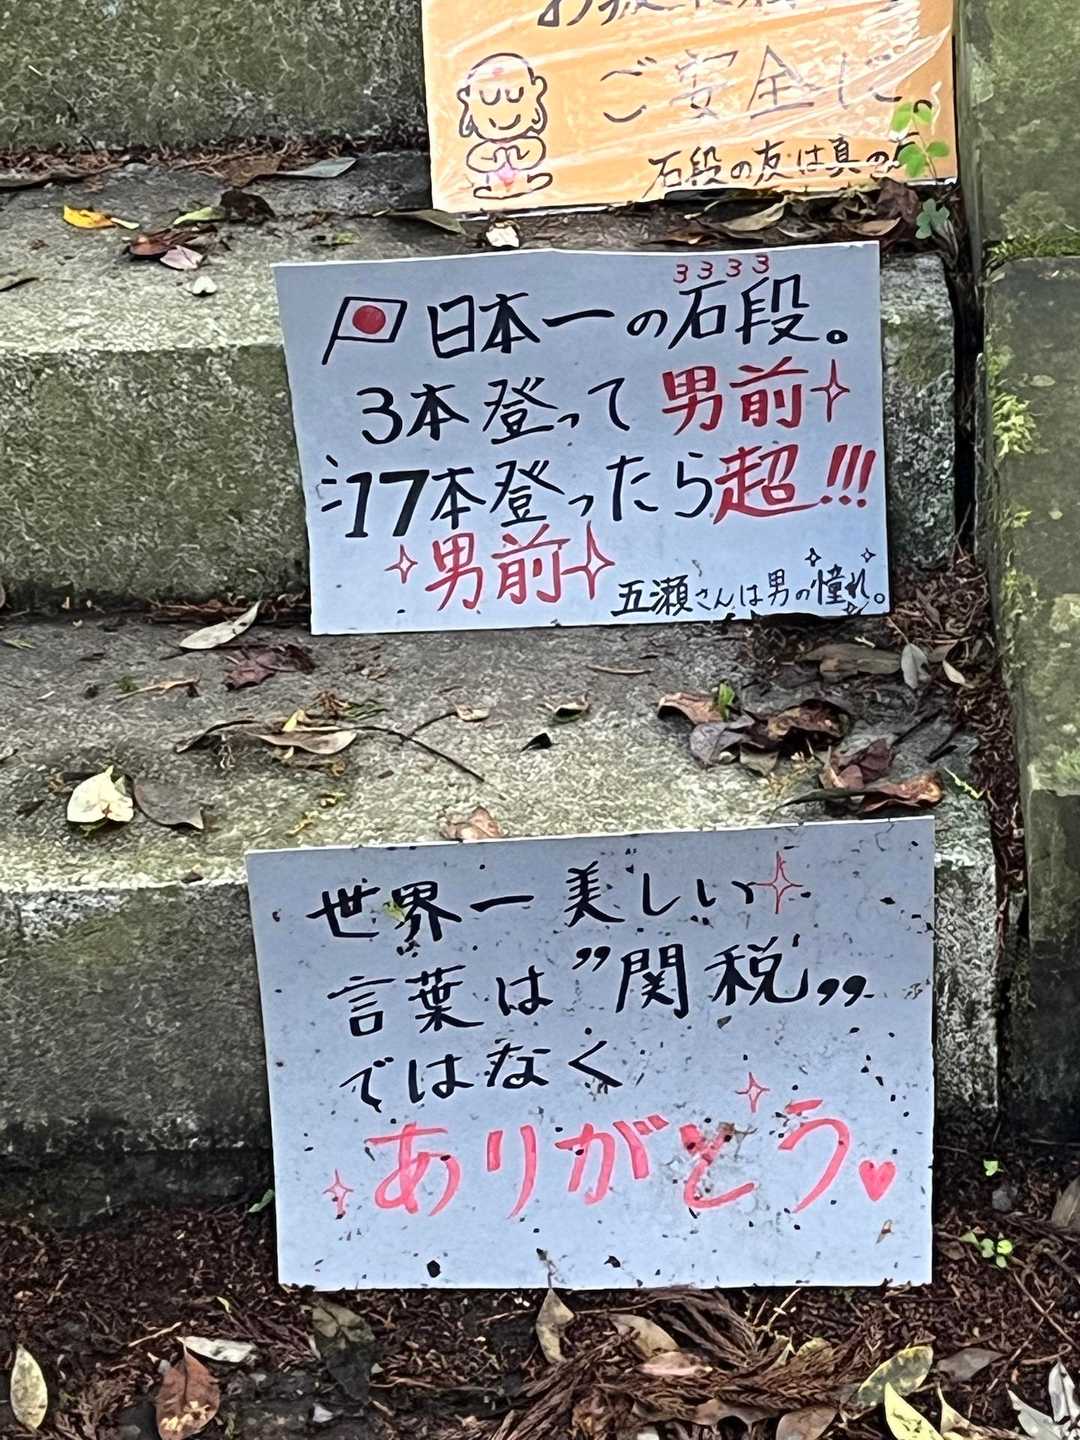 ご安全に。
石段の友は真の
3333
日本一の石段。
3本登って男前
17本登ったら超!!!
男前
五瀬さんは男の憧れ。
世界一美しい
言葉は”関税”
ではなく
ありがとう